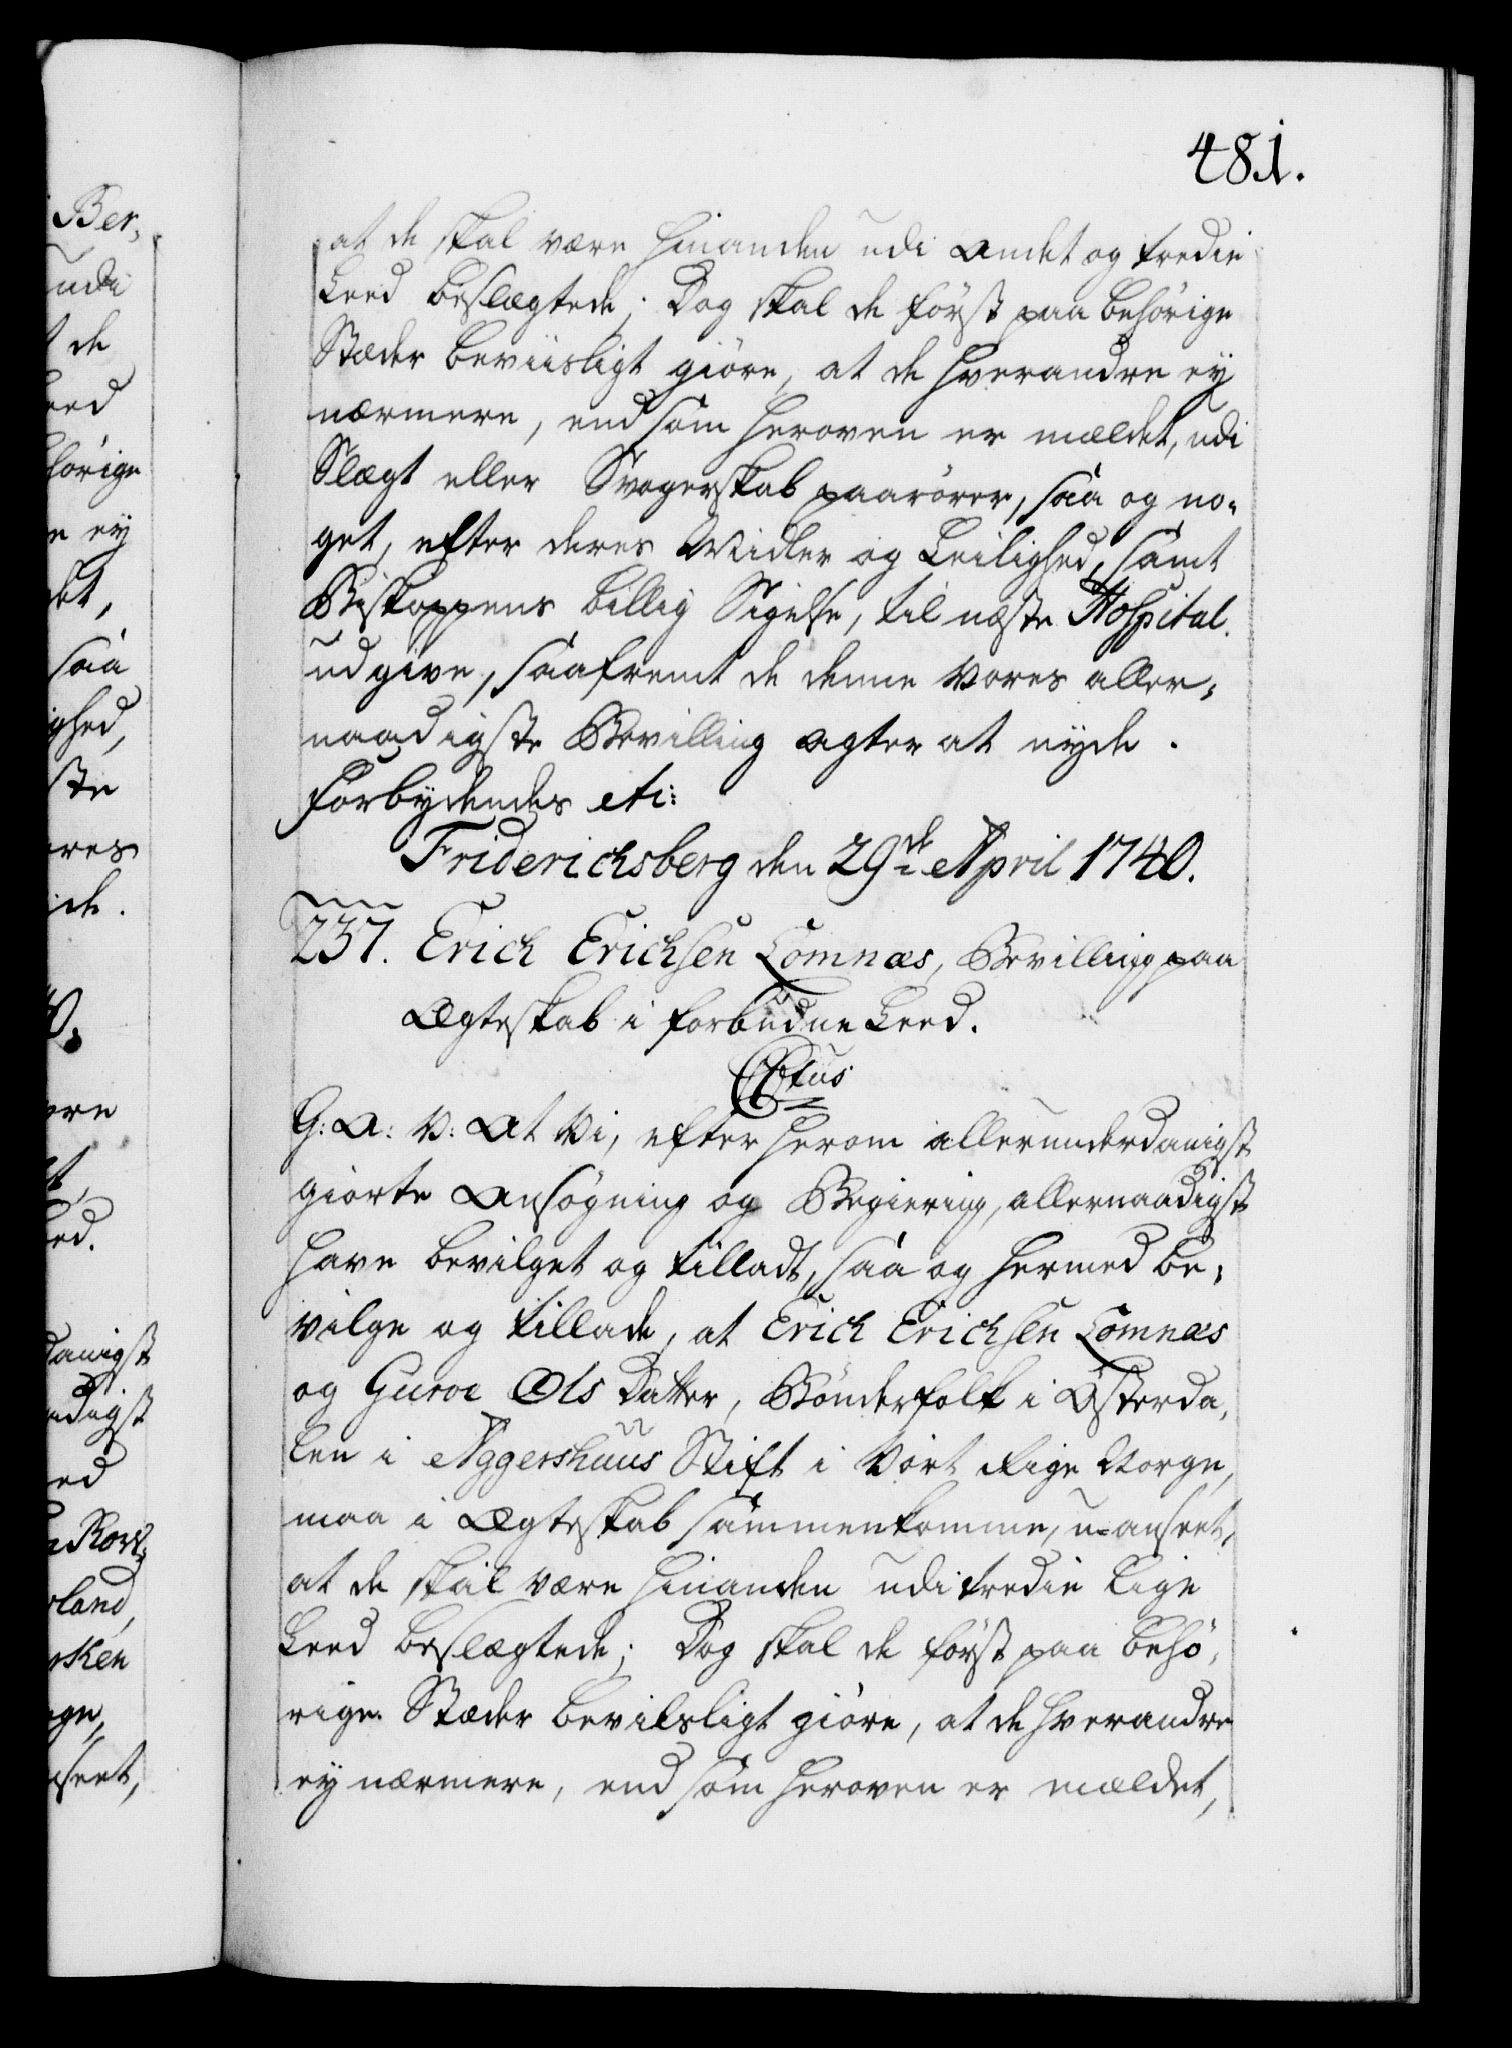 481.
at de skal være hinanden udi andet og tredie
Leed beslægtede; Dog skal de först paa behörige
Stæder beviisligt giöre, at de hverandre ey
nærmere, end som heroven er mældet, udi
Slægt eller Svogerskab paarörer, saa og no-
get, efter deres Midler og Leilighed, samt
Biskoppens billig Sigelse, til næste Hospital
udgive, saafremt de denne Vores aller-
naadigste Bevilling agter at nyde.
Forbydendes etc:
Friderichsberg den 29de April 1740.
237. Erich Erichsen Lomnæs, Bevilling paa
Ægteskab i forbudne Leed.
G: A: V: At Vi, efter herom allerunderdanigst
giorte Ansögning og Begiering, allernaadigst
have bevilget og tilladt, saa og hermed be-
vilge og tillade, at Erich Erichsen Lomnæs
og Guroe Ols Datter, Bönderfolk i Österda-
len i Aggershuus Stift i Vort Rige Norge,
maa i Ægteskab sammenkomme, u-anseet,
at de skal være hinanden udi tredie lige
Leed beslægtede; Dog skal de först paa behö-
rige Stæder beviisligt giöre, at de hverandre
ey nærmere, end som heroven er mældet,
Ber,
udi
de
eed
hörige
ey
det,
saa
ghed,
ste
ores
yde.
ere
eed.
danigst
adigst
ed
land,
rken
seet,